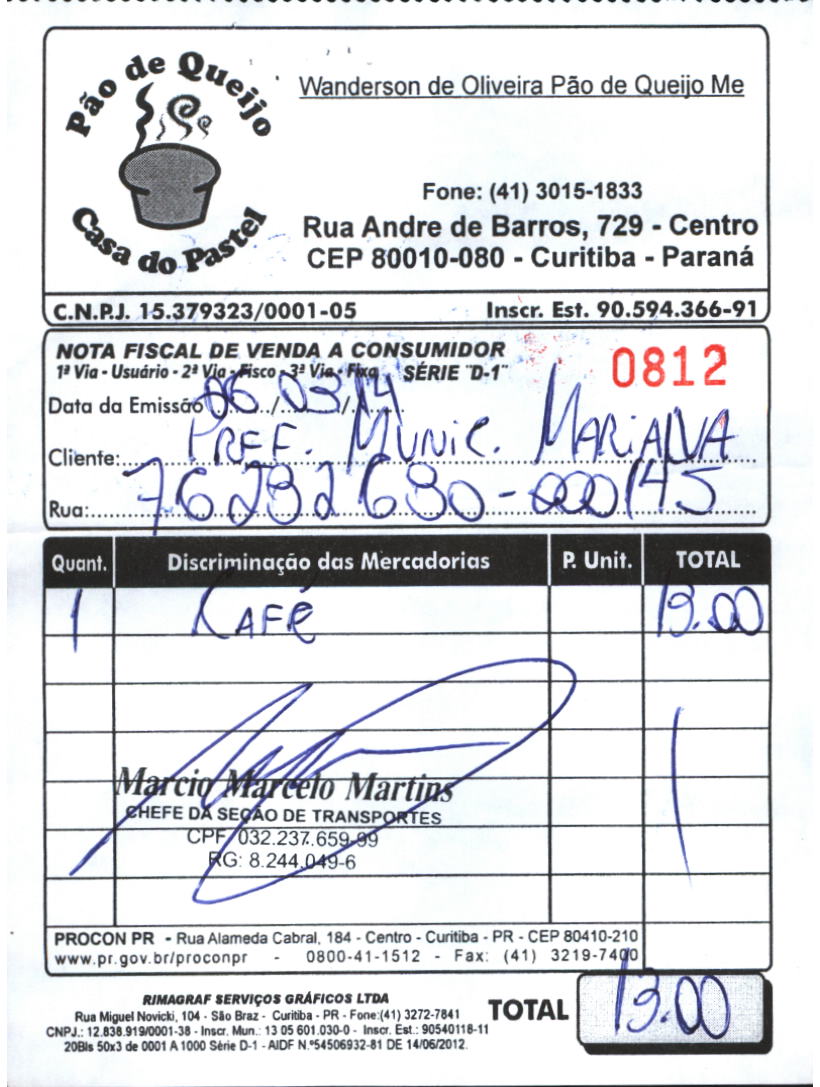 Pão de Queijo
Casa do Pastel
Wanderson de Oliveira Pão de Queijo Me
Fone: (41) 3015-1833
Rua Andre de Barros, 729 - Centro
CEP 80010-080 - Curitiba - Paraná
C.N.P.J. 15.379323/0001-05 Inscr. Est. 90.594.366-91
NOTA FISCAL DE VENDA A CONSUMIDOR
1ª Via - Usuário - 2ª Via - Fisco - 3ª Via - Fixa SÉRIE "D-1"
0812
Data da Emissão 06/03/14
Cliente: PREF. MUNIC. MARIALVA
Rua: 76282680-000/45
Quant. Discriminação das Mercadorias P. Unit. TOTAL
1 CAFÉ 13.00
Marcio Marcelo Martins
CHEFE DA SEÇÃO DE TRANSPORTES
CPF 032.237.659-99
RG: 8.244.049-6
PROCON PR - Rua Alameda Cabral, 184 - Centro - Curitiba - PR - CEP 80410-210
www.pr.gov.br/proconpr - 0800-41-1512 - Fax: (41) 3219-7400
RIMAGRAF SERVIÇOS GRÁFICOS LTDA
Rua Miguel Novicki, 104 - São Braz - Curitiba - PR - Fone:(41) 3272-7841
CNPJ.: 12.838.919/0001-38 - Inscr. Mun.: 13 05 601.030-0 - Inscr. Est.: 90540118-11
20Bls 50x3 de 0001 A 1000 Série D-1 - AIDF N.º54506932-81 DE 14/06/2012.
TOTAL 13.00